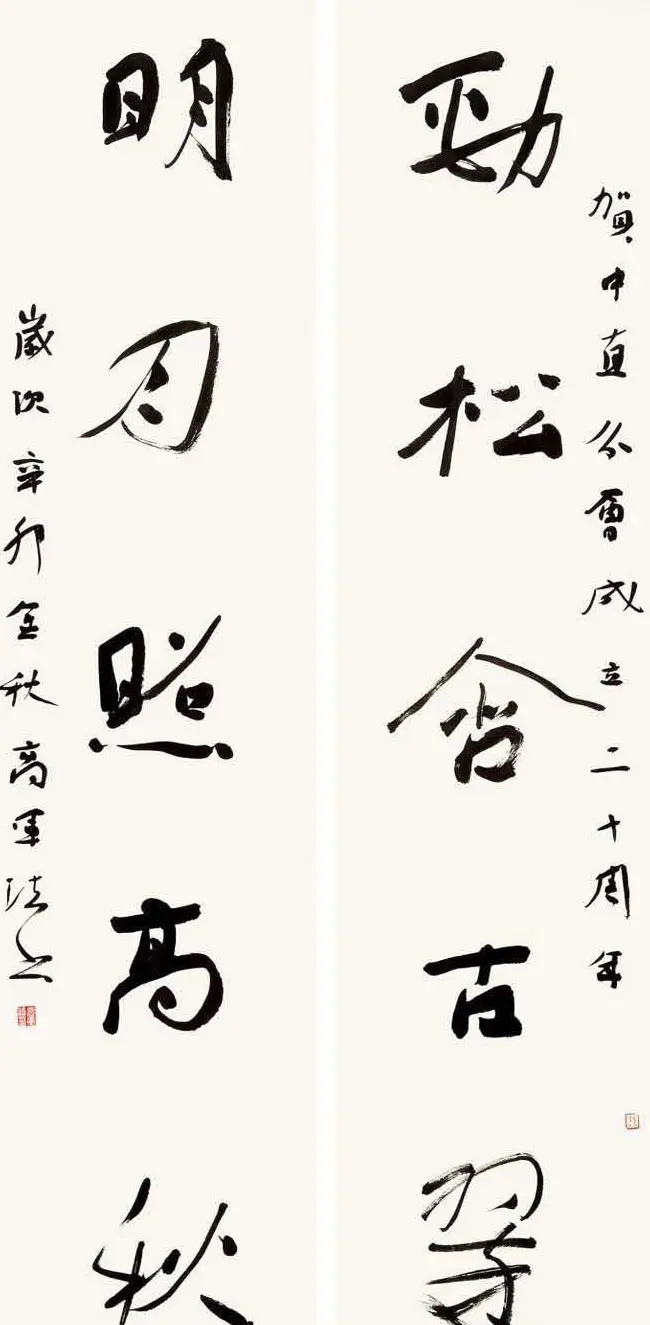 賀中直分會成立二十周年
勁松含古翠
明月照高秋
歲次辛卯金秋高軍法書